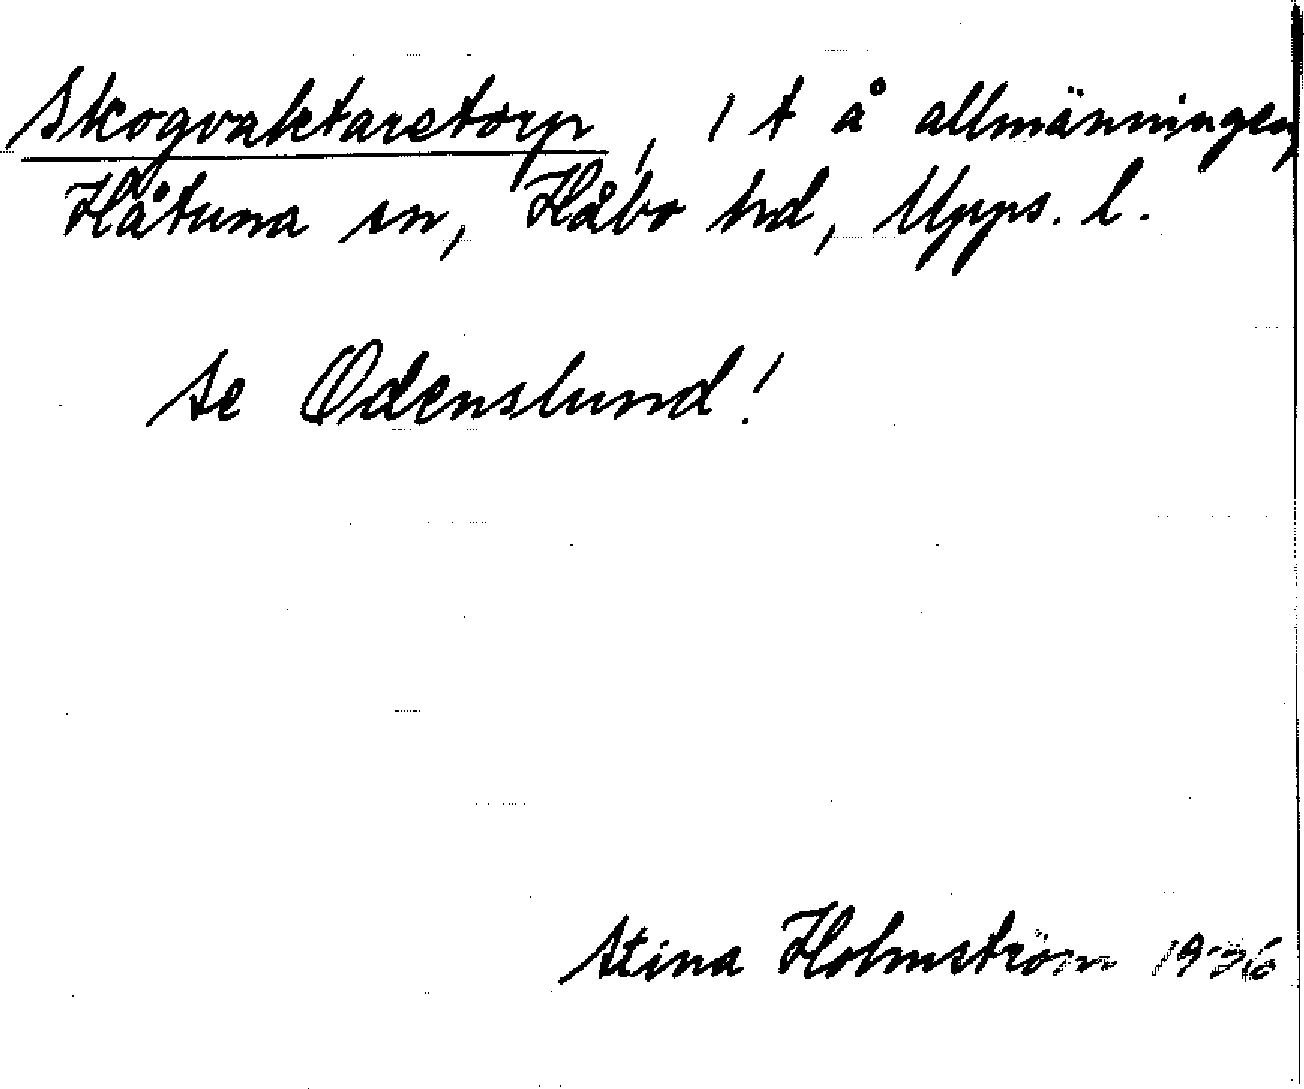 Skogvaktaretorp, 1 t å allmänningen,
Håtuna sn, Håbo hd, Upps. l.
Se Odenslund!
Stina Holmström 1936